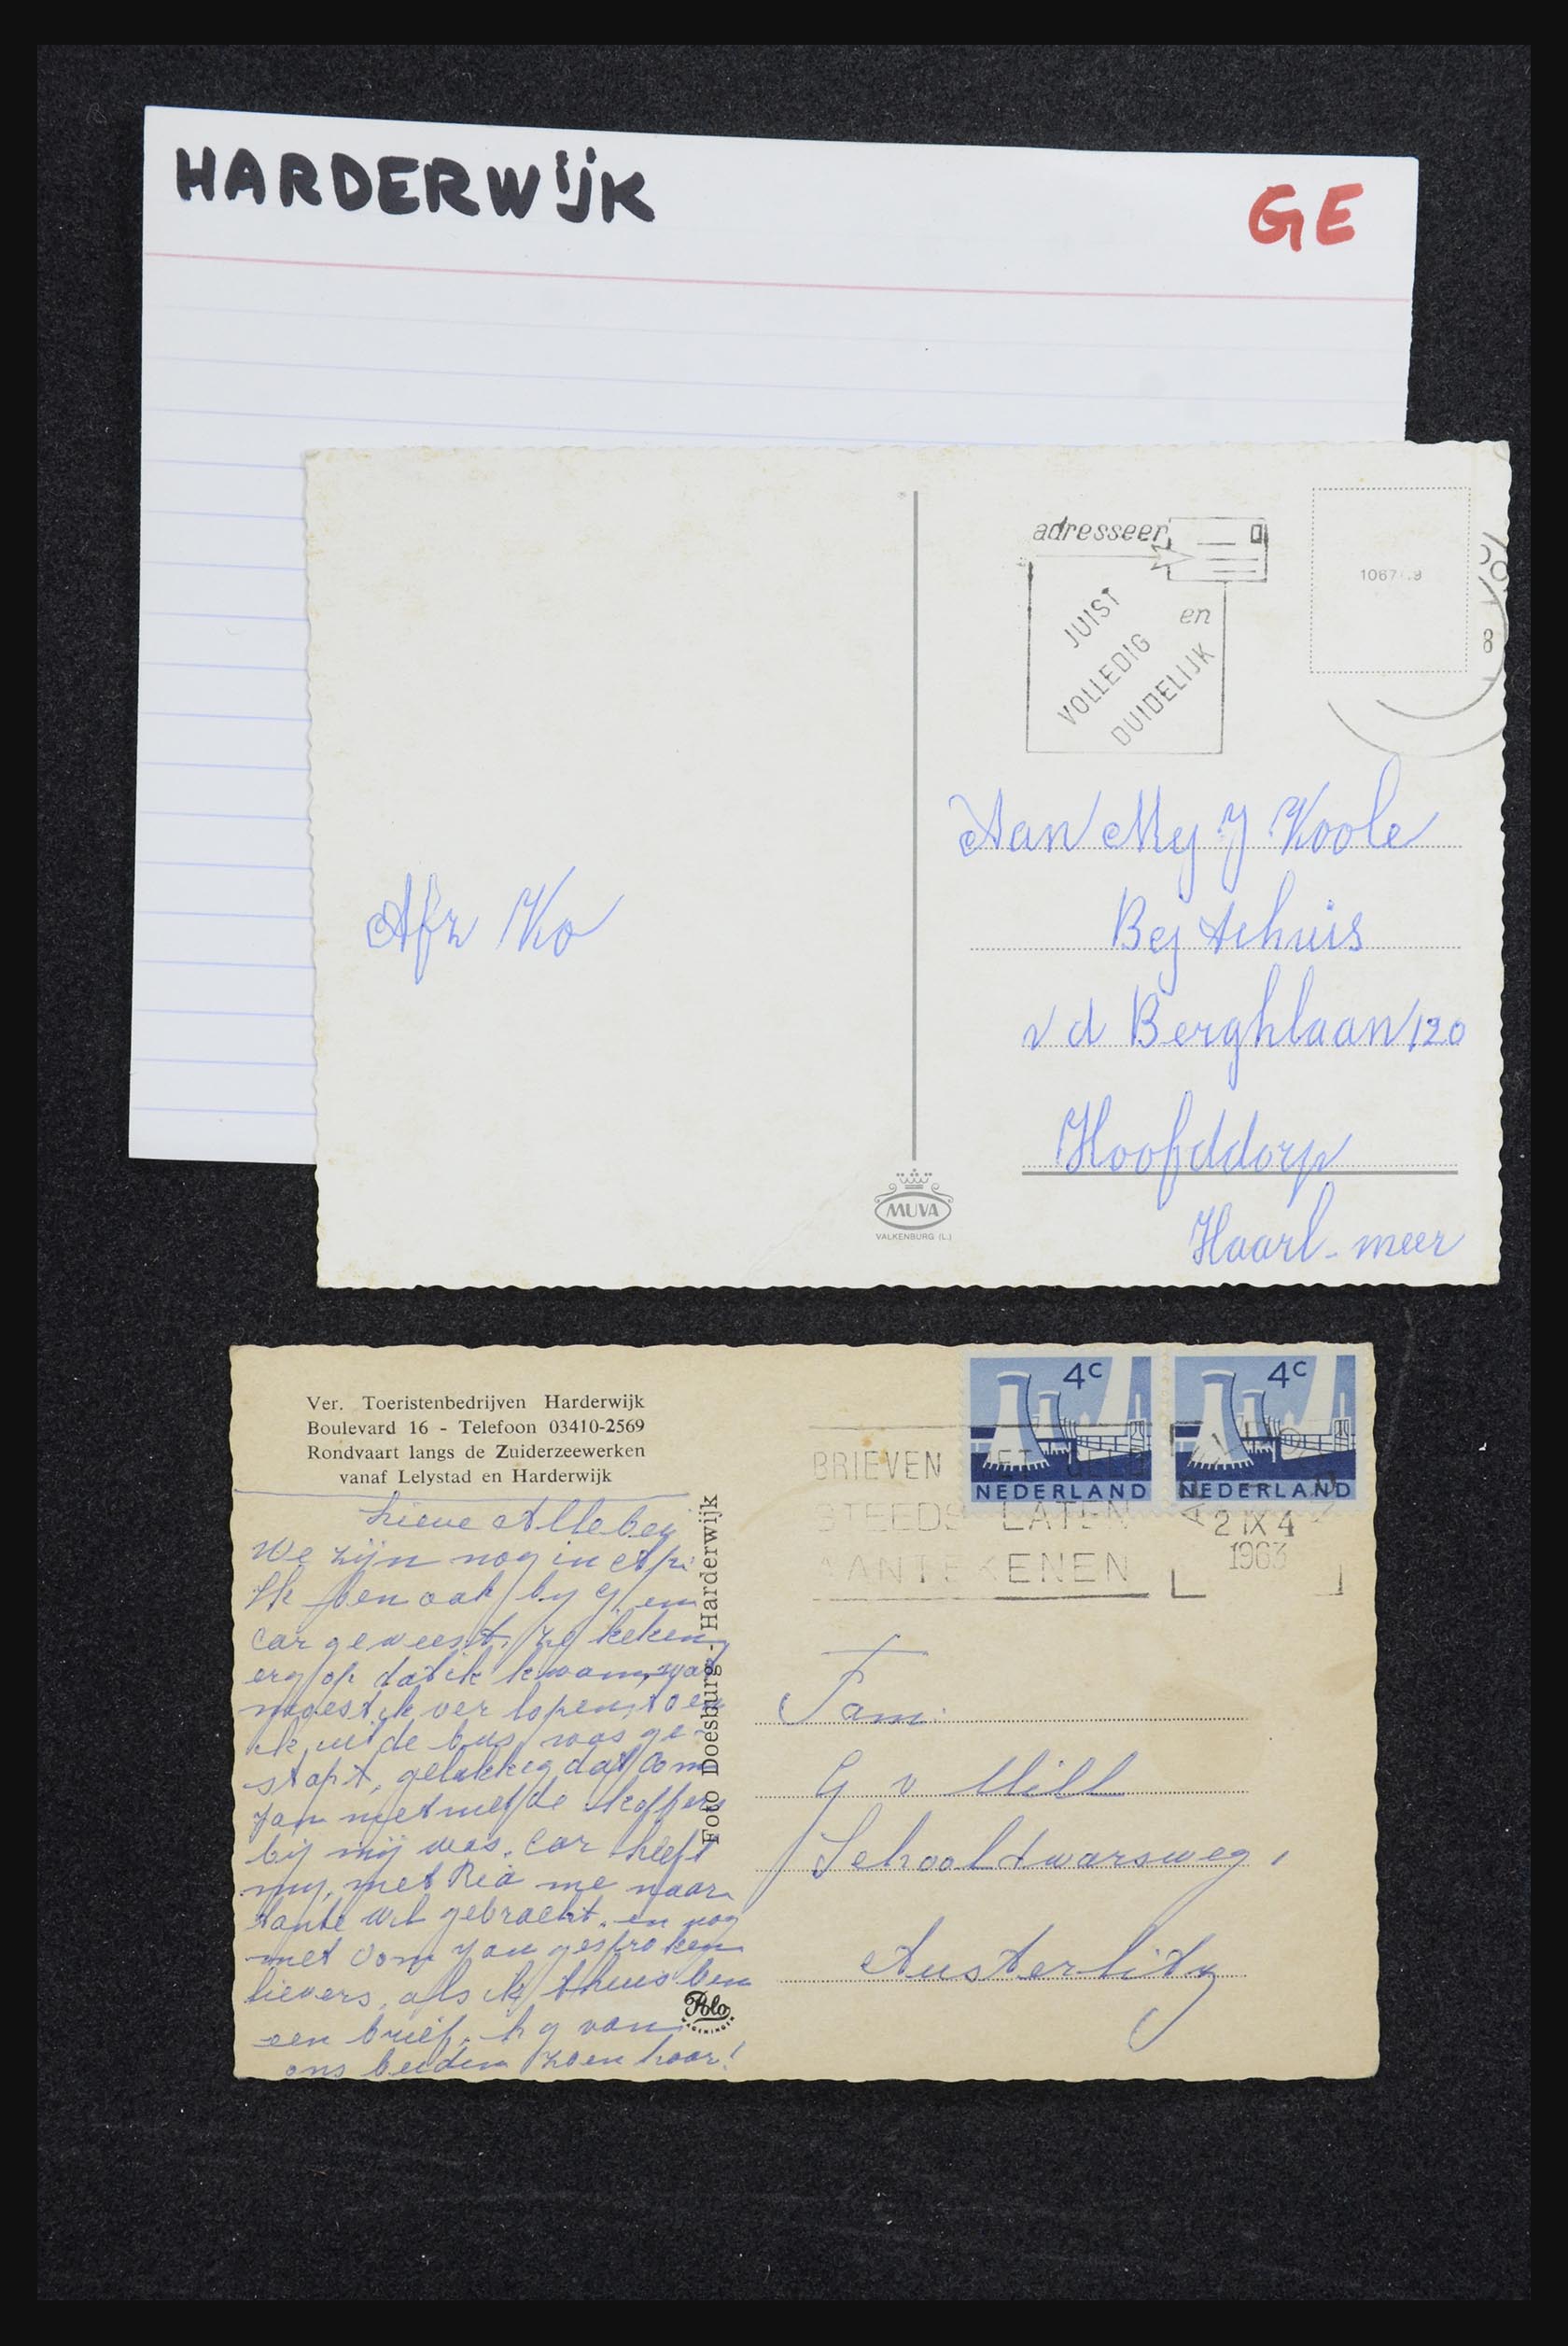 HARDERWIJK
GE
adresseer
JUIST
en
VOLLEDIG
DUIDELIJK
8
Aan Mej J Koole
Bej tehuis
v d Berghlaan 120
Hoofddorp
Haarl-meer
Afz Ko
MUVA
VALKENBURG (L.)
Ver. Toeristenbedrijven Harderwijk
Boulevard 16 - Telefoon 03410-2569
Rondvaart langs de Zuiderzeewerken
vanaf Lelystad en Harderwijk
4c
4c
NEDERLAND
NEDERLAND
BRIEVEN MET GELD
STEEDS LATEN
AANTEKENEN
2 IX 4
1963
Lieve Allebey
We zijn nog in Ap.
Ik ben ook by G en
Car geweest. Ze keken
erg op dat ik kwam, wat
moest ik ver lopen, toen
ik uit de bus was ge-
stapt, gelukkig dat Oom
Jan met de koffers
bij mij was. Car heeft
my, met Ria me naar
tante Wil gebracht. en nog
met Oom Jan gesproken
lievers, als ik thuis ben
een brief. h g van
ons beiden zoen hoor!
Foto Doesburg - Harderwijk
Polo
WAGENINGEN
Fam.
G v Mill
Schooldwarsweg,
Austerlitz